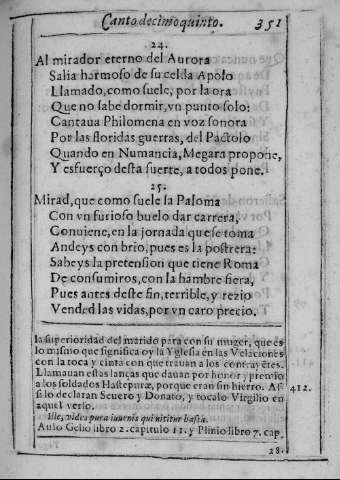 Canto decimoquinto. 351
24.
Al mirador eterno del Aurora
Salia harmoso de su celda Apolo
Llamado, como suele, por la ora
Que no sabe dormir, vn punto solo:
Cantaua Philomena en voz sonora
Por las floridas guerras, del Pactolo
Quando en Numancia, Megara propone,
Y esfuerço desta suerte, a todos pone.
25.
Mirad, que como suele la Paloma
Con vn furioso buelo dar carrera,
Conuiene, en la jornada que se toma
Andeys con brio, pues es la postrera:
Sabeys la pretension que tiene Roma
De consumiros, con la hambre fiera,
Pues antes deste fin, terrible, y rezio
Vended las vidas, por vn caro precio.
la superioridad del marido para con su muger, que es
lo mismo que significa oy la Yglesia en las Velaciones
con la toca y cinta con que trauan a los contrayẽtes.
Llamauan estas lanças que dauan por honor y premio
a los soldados Hastepuræ, porque eran sin hierro. Asi
si lo declaran Seuero y Donato, y tocalo Virgilio en
aquel verso.
412.
Ille, vides pura iuuenis qui nititur hasta.
Aulo Gelio libro 2. capitulo 11. y Plinio libro 7. cap.
28.